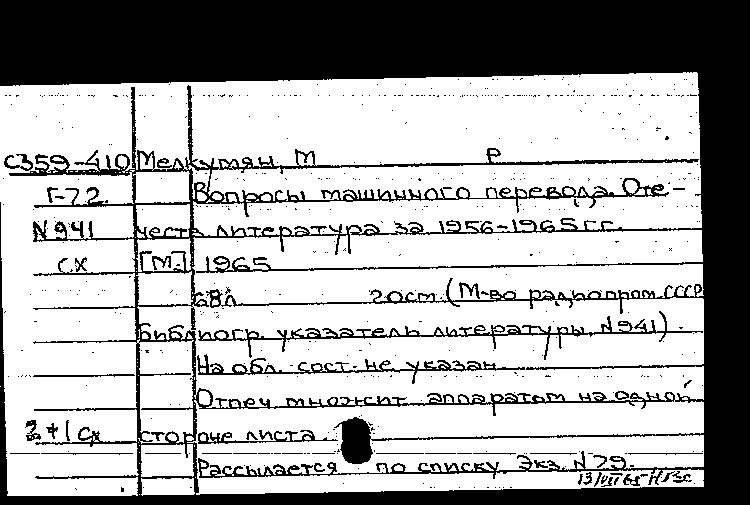 С359-410 Мелкумян, М Р
Г-72 Вопросы машинного перевода. Оте-
N 941 честв литература за 1956-1965 гг.
сх [М.] 1965
68л 20см (М-во радиопром. СССР
Библиогр. указатель литературы, N941).
На обл. сост. не указан
Отпеч множит аппаратом на одной
2+1 сх стороне листа.
Рассылается по списку. Экз. N 79.
13/VII 65